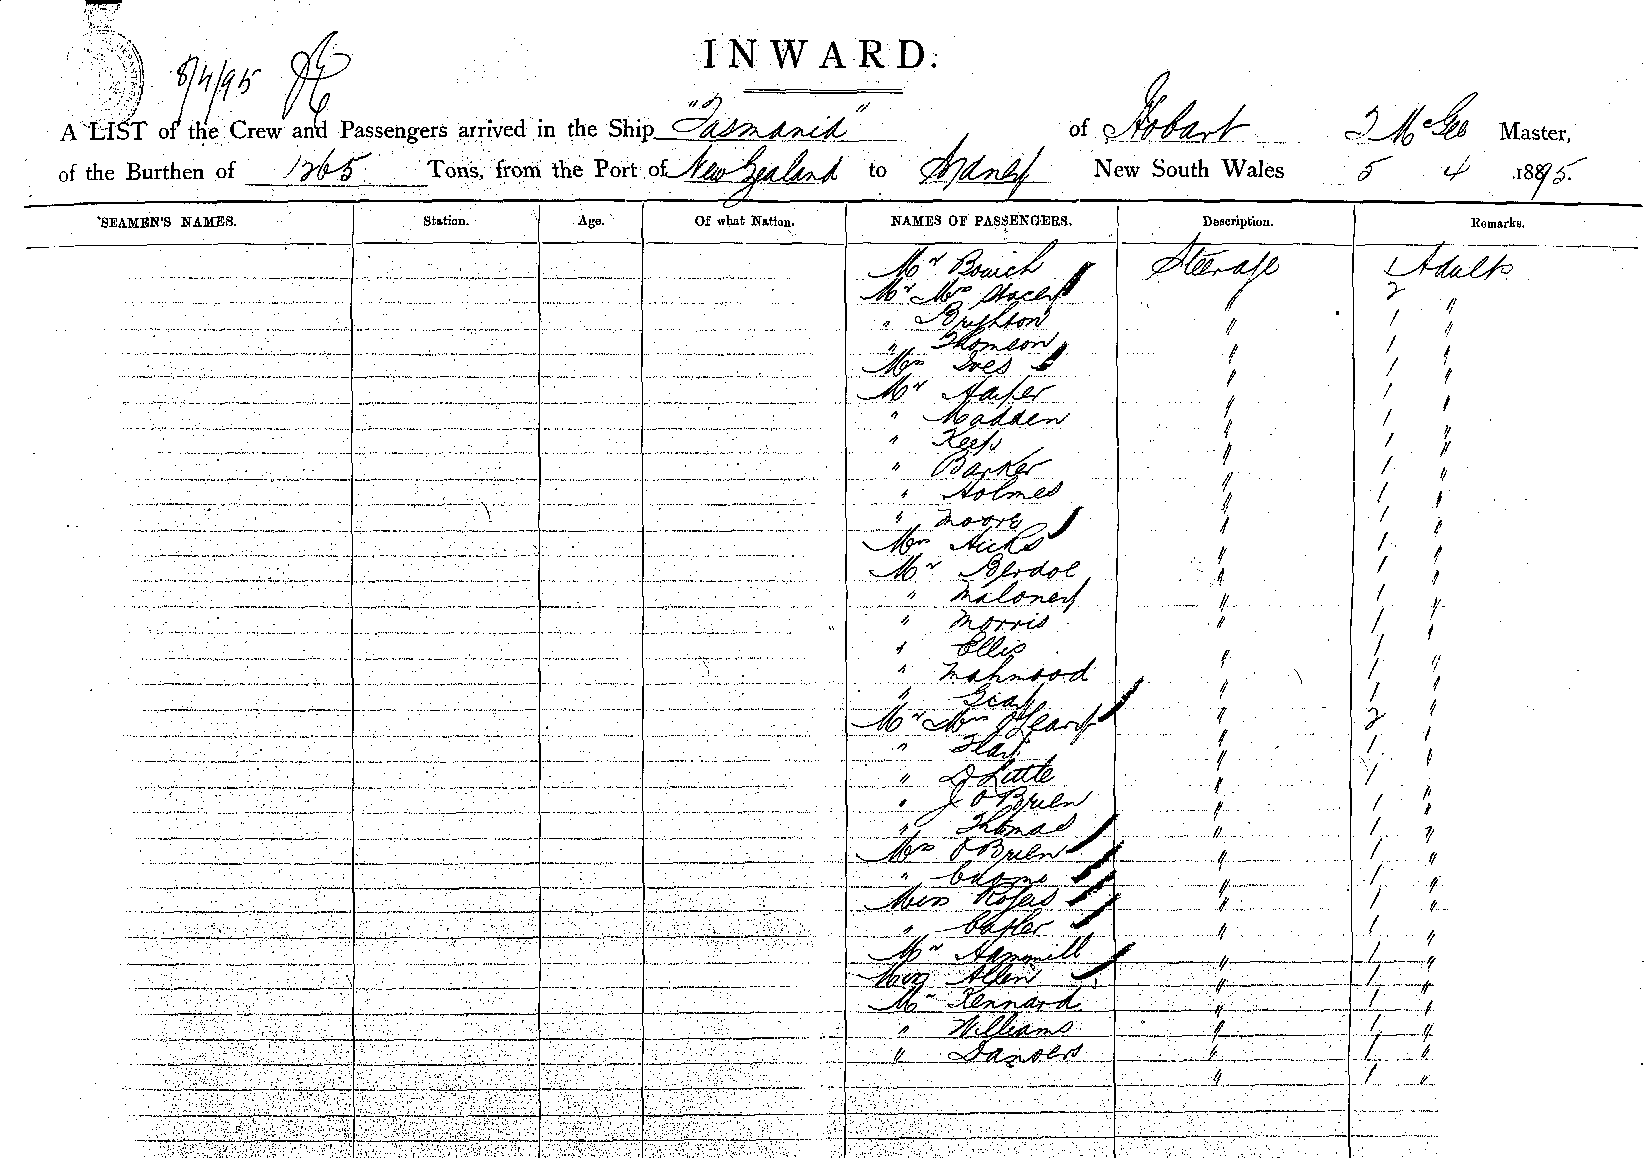 8/4/95
INWARD.
A LIST of the Crew and Passengers arrived in the Ship "Tasmania" of Hobart T McGee Master,
of the Burthen of 1265 Tons, from the Port of New Zealand to Sydney New South Wales 5 4 1895.
SEAMEN'S NAMES. Station. Age. Of what Nation. NAMES OF PASSENGERS. Description. Remarks.
Mr Bowich Steerage 1 Adults
Mr Mrs Stacey " 2 "
" Brighton " 1 "
" Thomson " 1 "
Mrs Ives " 1 "
Mr Harper " 1 "
" Madden " 1 "
" Keep " 1 "
" Barker " 1 "
" Holmes " 1 "
" Moore " 1 "
Mrs Hicks " 1 "
Mr " 1 "
" Maloney " 1 "
" Morris " 1 "
" Ellis " 1 "
" Mahmood " 1 "
" Gray " 1 "
Mr Mrs O'Leary " 2 "
" " 1 "
" D Little " 1 "
" J O'Brien " 1 "
" Thomas " 1 "
Mrs O'Brien " 1 "
" " 1 "
Miss " 1 "
" " 1 "
Mr Hammill " 1 "
Miss Allen " 1 "
Mr Kennard " 1 "
" Williams " 1 "
" Danvers " 1 "
" 1 "